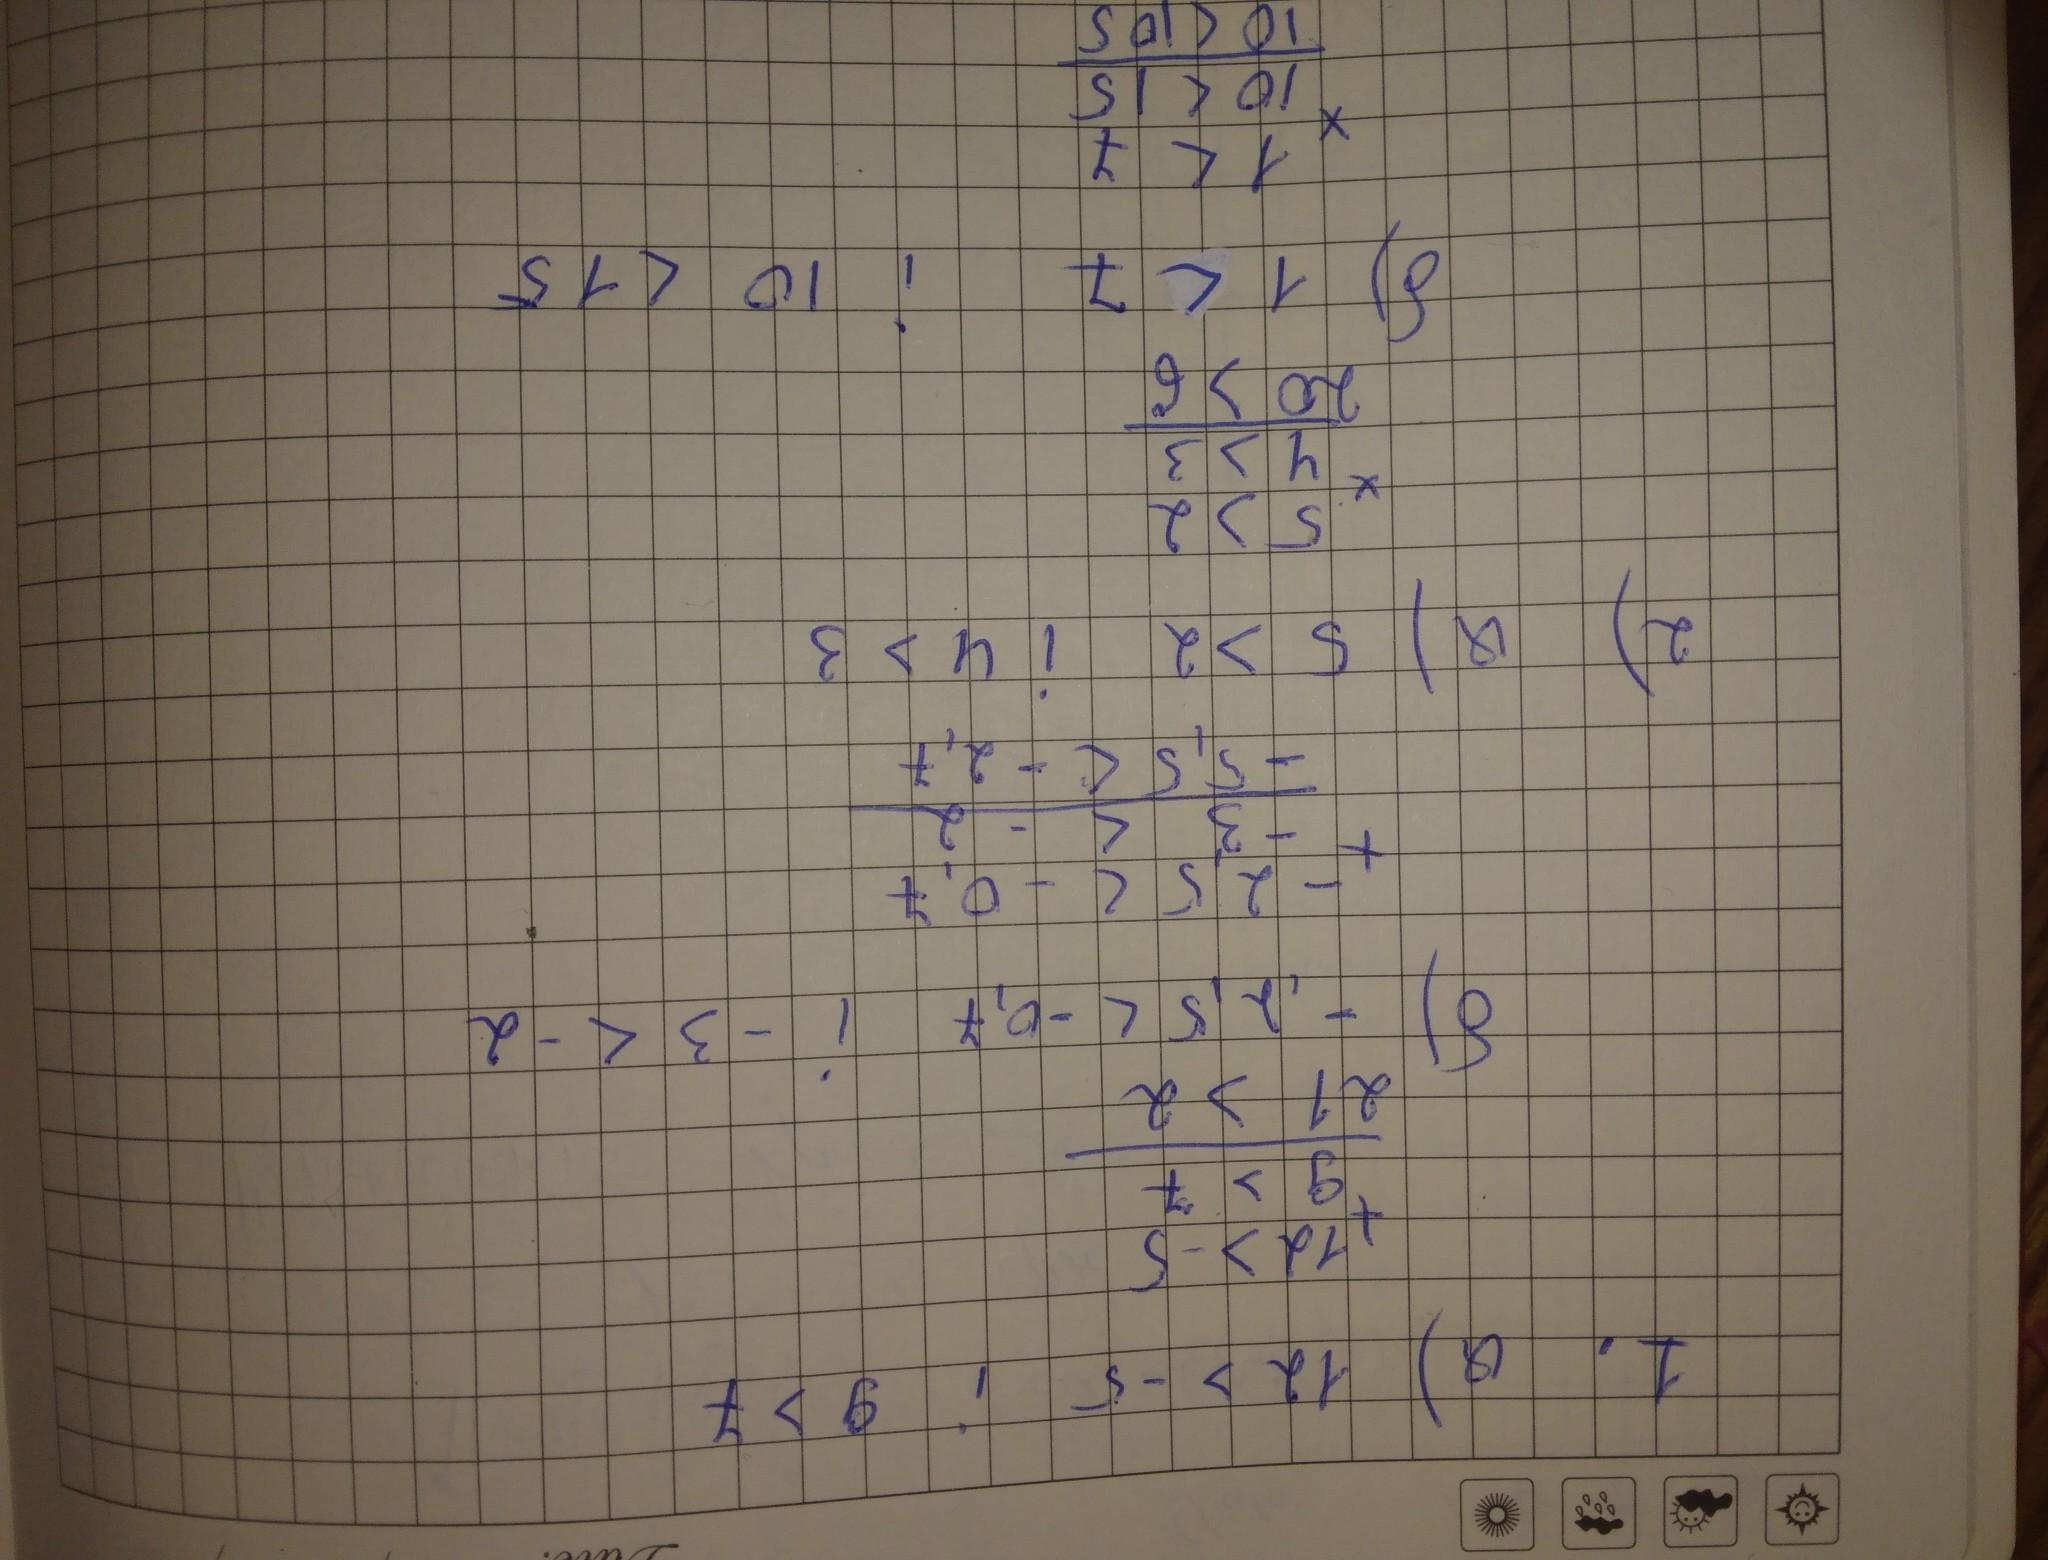 Date:
1. а) 12 > -5 і 9 > 7
12 > -5
+
9 > 7
21 > 2
б) -2,5 < -0,7 і -3 < -2
-2,5 < -0,7
+
-3 < -2
-5,5 < -2,7
2) а) 5 > 2 і 4 > 3
5 > 2
x
4 > 3
20 > 6
б) 1 < 7 і 10 < 15
1 < 7
x
10 < 15
10 < 105